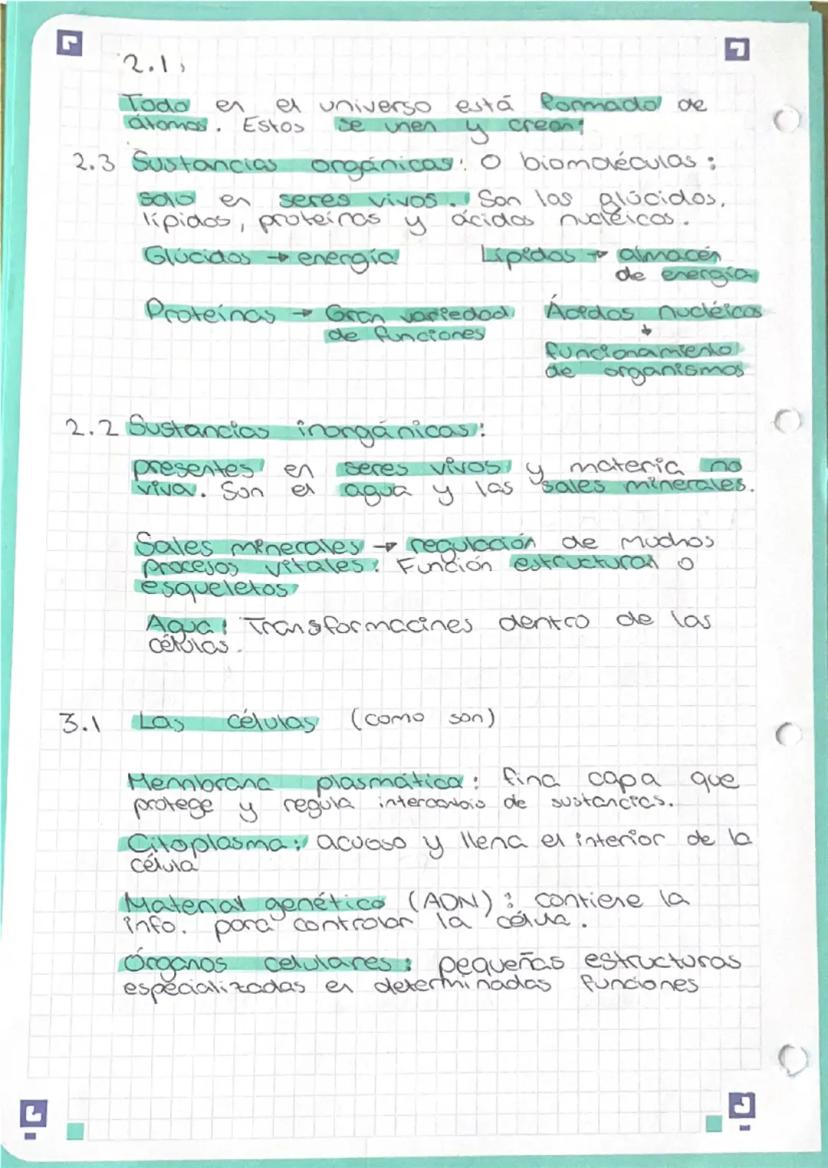 2.1,
Todo en el universo está formado de
átomos. Estos se unen y crean:
2.3 Sustancias orgánicas: O biomoléculas:
solo en seres vivos. Son los glúcidos,
lípidos, proteínas y ácidos nucléicos.
Glúcidos → energía Lípidos → almacén
de energía
Proteínas → Gran variedad Ácidos nucléicos
de funciones ↓
funcionamiento
de organismos
2.2 Sustancias inorgánicas:
presentes en seres vivos y materia no
viva. Son el agua y las sales minerales.
Sales minerales → regulación de muchos
procesos vitales. Función estructural o
esqueletos
Agua: Transformacines dentro de las
células.
3.1 Las células (como son)
Membrana plasmática: fina capa que
protege y regula intercambio de sustancias.
Citoplasma: acuoso y llena el interior de la
célula
Material genético (ADN): contiene la
info. para controlar la célula.
Órganos celulares: pequeñas estructuras
especializadas en determinadas funciones